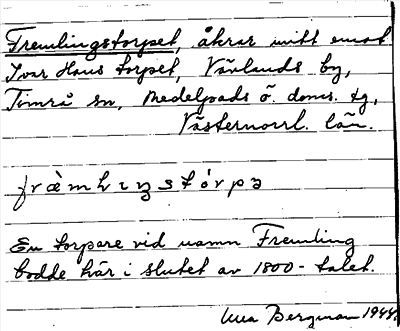 Fremlingstorpet, åkrar mitt emot
Ivar Hans torpet, Vävlands by,
Timrå sn, Medelpads ö. doms. tg,
Västernorrl. län.
En torpare vid namn Fremling
bodde här i slutet av 1800-talet.
Bergman 1944.